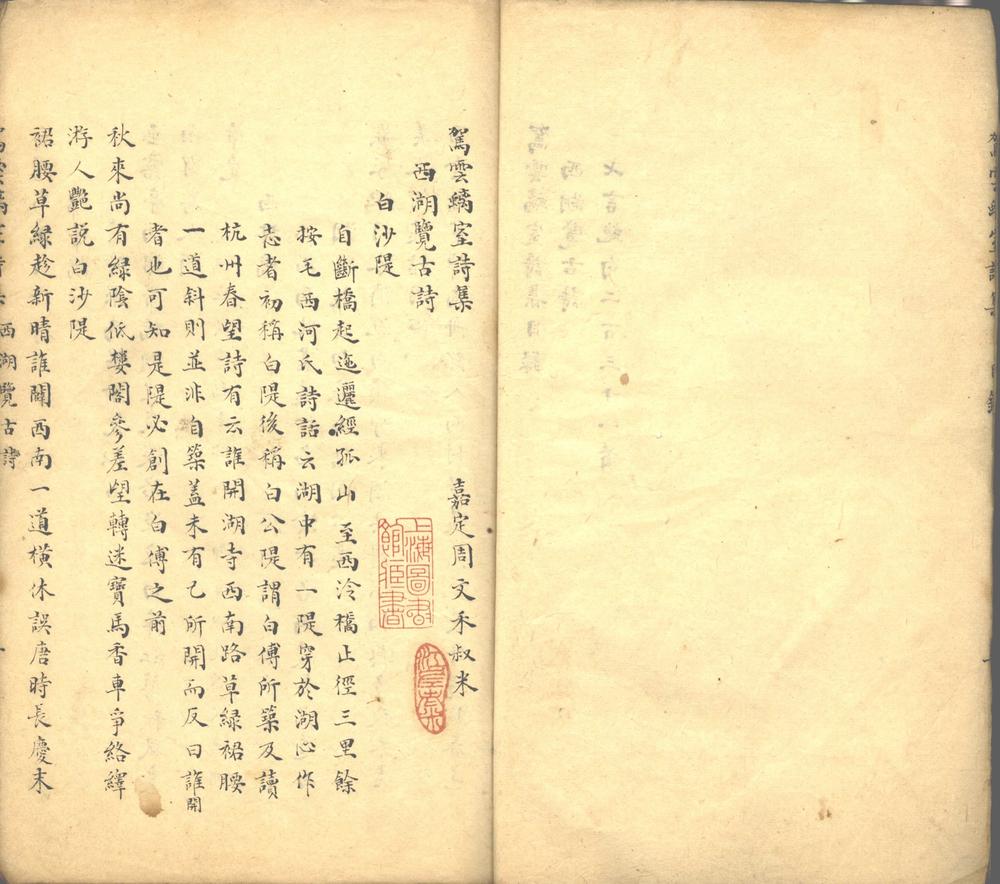 駕雲螭室詩集
嘉定周文禾叔米
西湖覽古詩
白沙隄
自斷橋起迤邐經孤山至西泠橋止徑三里餘
按毛西河氏詩話云湖中有一隄穿於湖心作
志者初稱白隄後稱白公隄謂白傅所築及讀
杭州春望詩有云誰開湖寺西南路草綠裙腰
一道斜則並非自築蓋未有己所開而反曰誰開
者也可知是隄必創在白傅之前
秋來尚有綠陰低樓閣參差望轉迷寶馬香車爭絡繹
游人艷説白沙隄
裙腰草綠趁新晴誰闢西南一道橫休誤唐時長慶末
上海圖書館藏書
西湖覽古詩